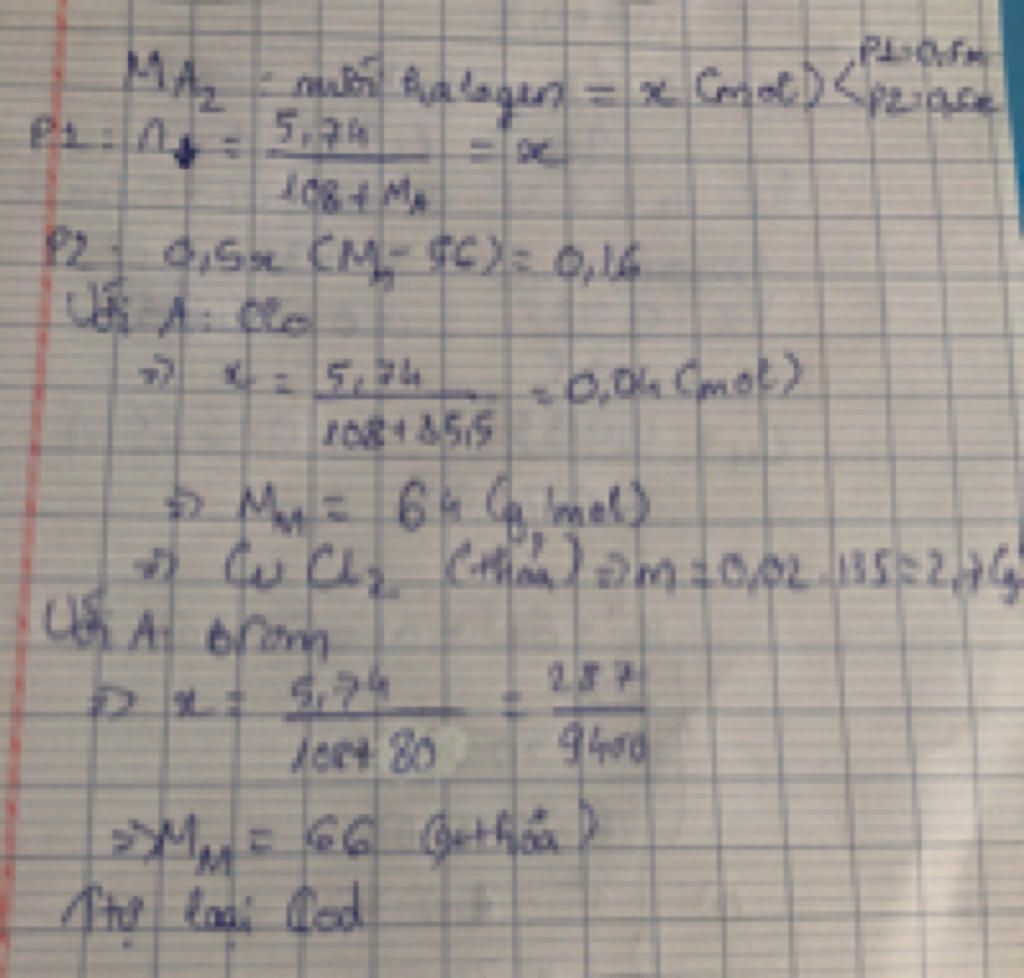 MA₂ : muối halogen = x (mol) < P1: 0,5x P2: 0,5x
P1: n↓ = 5,74 / (108 + M_A) = x
P2: 0,5x (M_M - 56) = 0,16
Với A: Clo
=> x = 5,74 / (108 + 35,5) = 0,04 (mol)
=> M_M = 64 (g/mol)
=> CuCl₂ (thỏa) => m = 0,02 . 135 = 2,7 (g
Với A: Brom
=> x = 5,74 / (108 + 80) = 287 / 9400
=> M_M = 66 (ko thỏa)
Ttự loại Iod